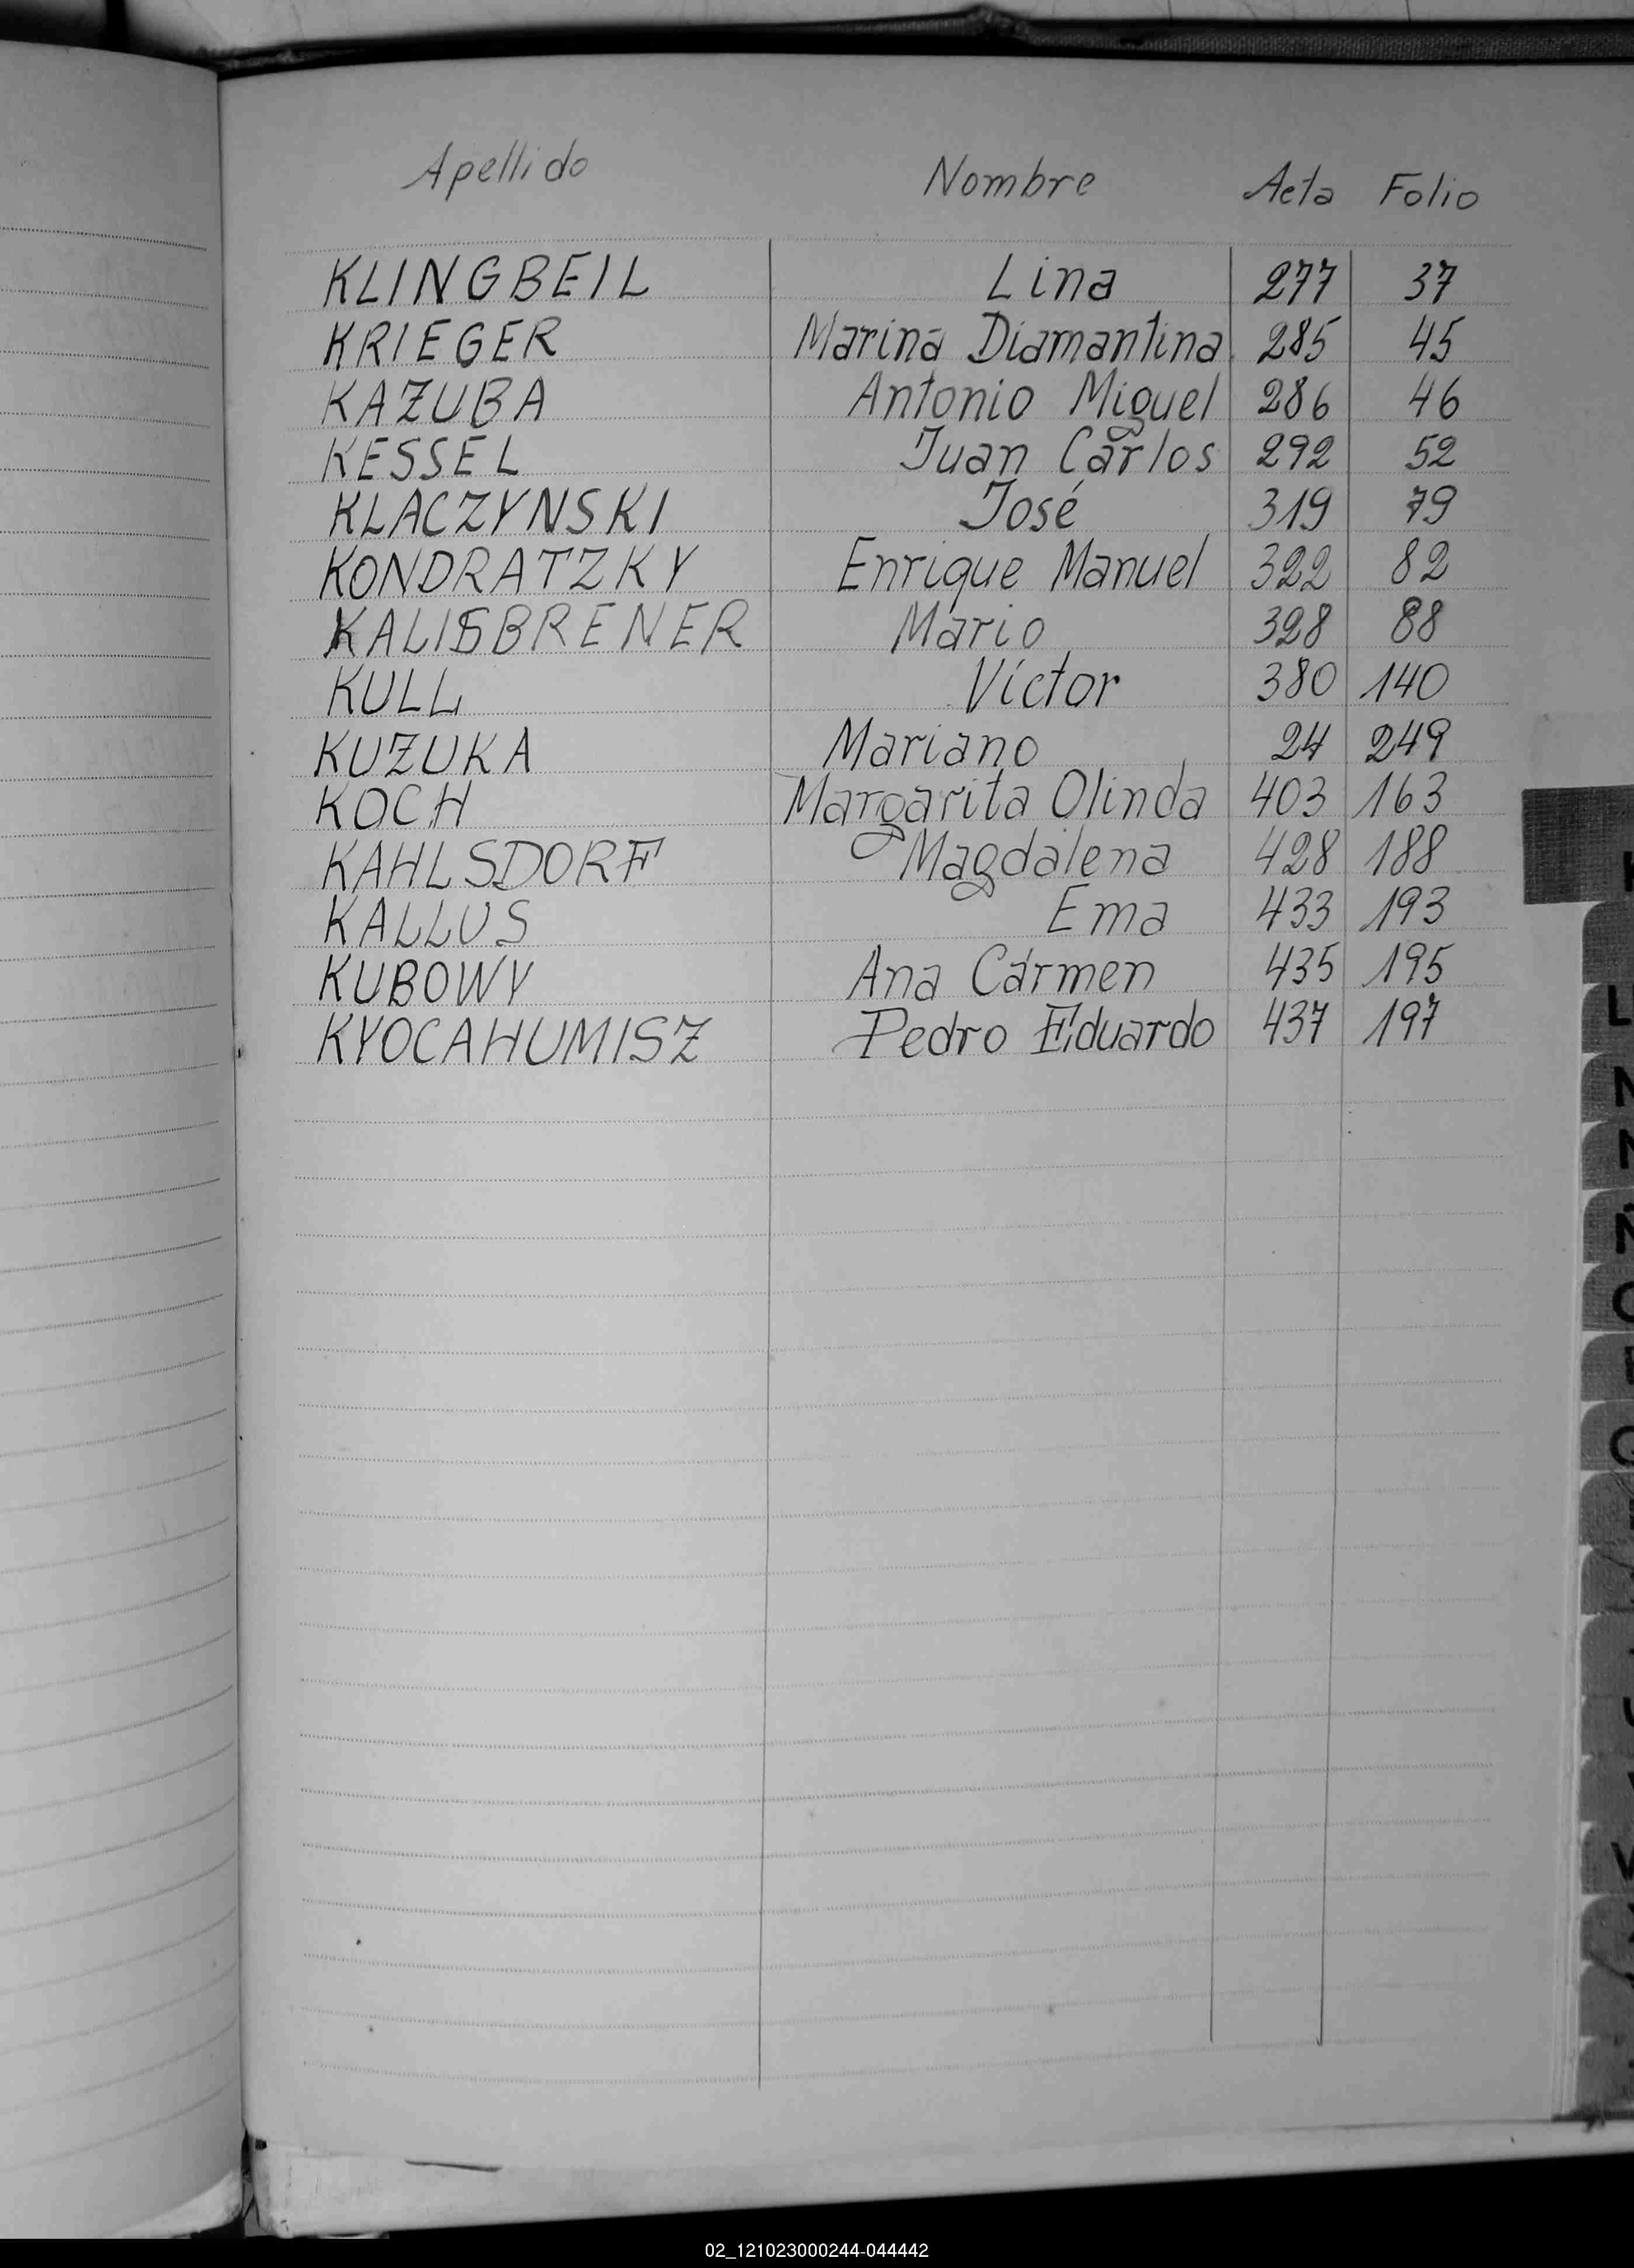 Apellido Nombre Acta Folio
KLINGBEIL Lina 277 37
KRIEGER Marina Diamantina 285 45
KAZUBA Antonio Miguel 286 46
KESSEL Juan Carlos 292 52
KLACZYNSKI José 319 79
KONDRATZKY Enrique Manuel 322 82
KALISBRENER Mario 328 88
KULL Víctor 380 140
KUZUKA Mariano 24 249
KOCH Margarita Olinda 403 163
KAHLSDORF Magdalena 428 188
KALLUS Ema 433 193
KUBOWY Ana Carmen 435 195
KYOCAHUMISZ Pedro Eduardo 437 197
K
L
N
Ñ
O
Q
V
02_121023000244-044442